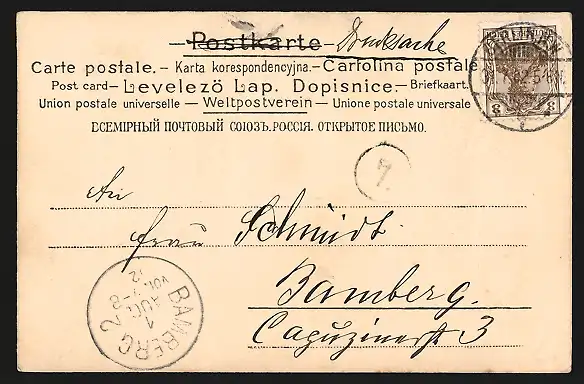 Postkarte – Drucksache
Carte postale. – Karta korespondencyjna. – Cartolina postale
Post card – Levelező Lap. Dopisnice – Briefkaart.
Union postale universelle – Weltpostverein – Unione postale universale
ВСЕМІРНЫЙ ПОЧТОВЫЙ СОЮЗЪ. РОССІЯ. ОТКРЫТОЕ ПИСЬМО.
7.
An
Frau Schmidt.
Bamberg.
Capuzinerst 3
BAMBERG 2
1
AUG
12
8 8